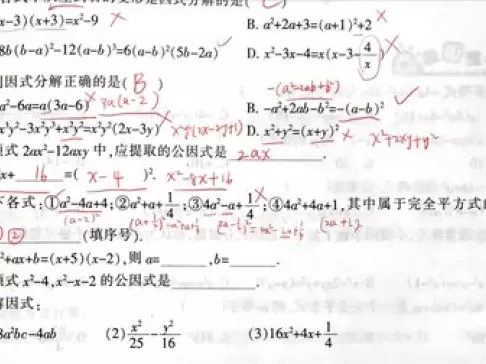 x-3)(x+3)=x²-9 ×
B. a²+2a+3=(a+1)²+2 ×
8b(b-a)²-12(a-b)³=6(a-b)²(5b-2a) ✓
D. x²-3x-4=x(x-3-4/x) ×
列因式分解正确的是( B )
a²-6a=a(3a-6) × 3a(a-2)
-(a²-2ab+b²)
B. -a²+2ab-b²=-(a-b)² ✓
x³y²-3x²y³+x²y²=x²y²(2x-3y) x²y²(2x-3y+1)
D. x²+y²=(x+y)² × x²+2xy+y²
项式 2ax²-12axy 中,应提取的公因式是 2ax .
x+ 16 =( x-4 )². x²-8x+16
下各式:①a²-4a+4;②a²+a+1/4;③4a²-a+1/4;④4a²+4a+1,其中属于完全平方式的
(a-2)²
② (填序号).
²+ax+b=(x+5)(x-2),则 a= ,b= .
项式 x²-4,x²-x-2 的公因式是 .
解因式:
8a²bc-4ab (2) x²/25-y²/16 (3)16x²+4x+1/4